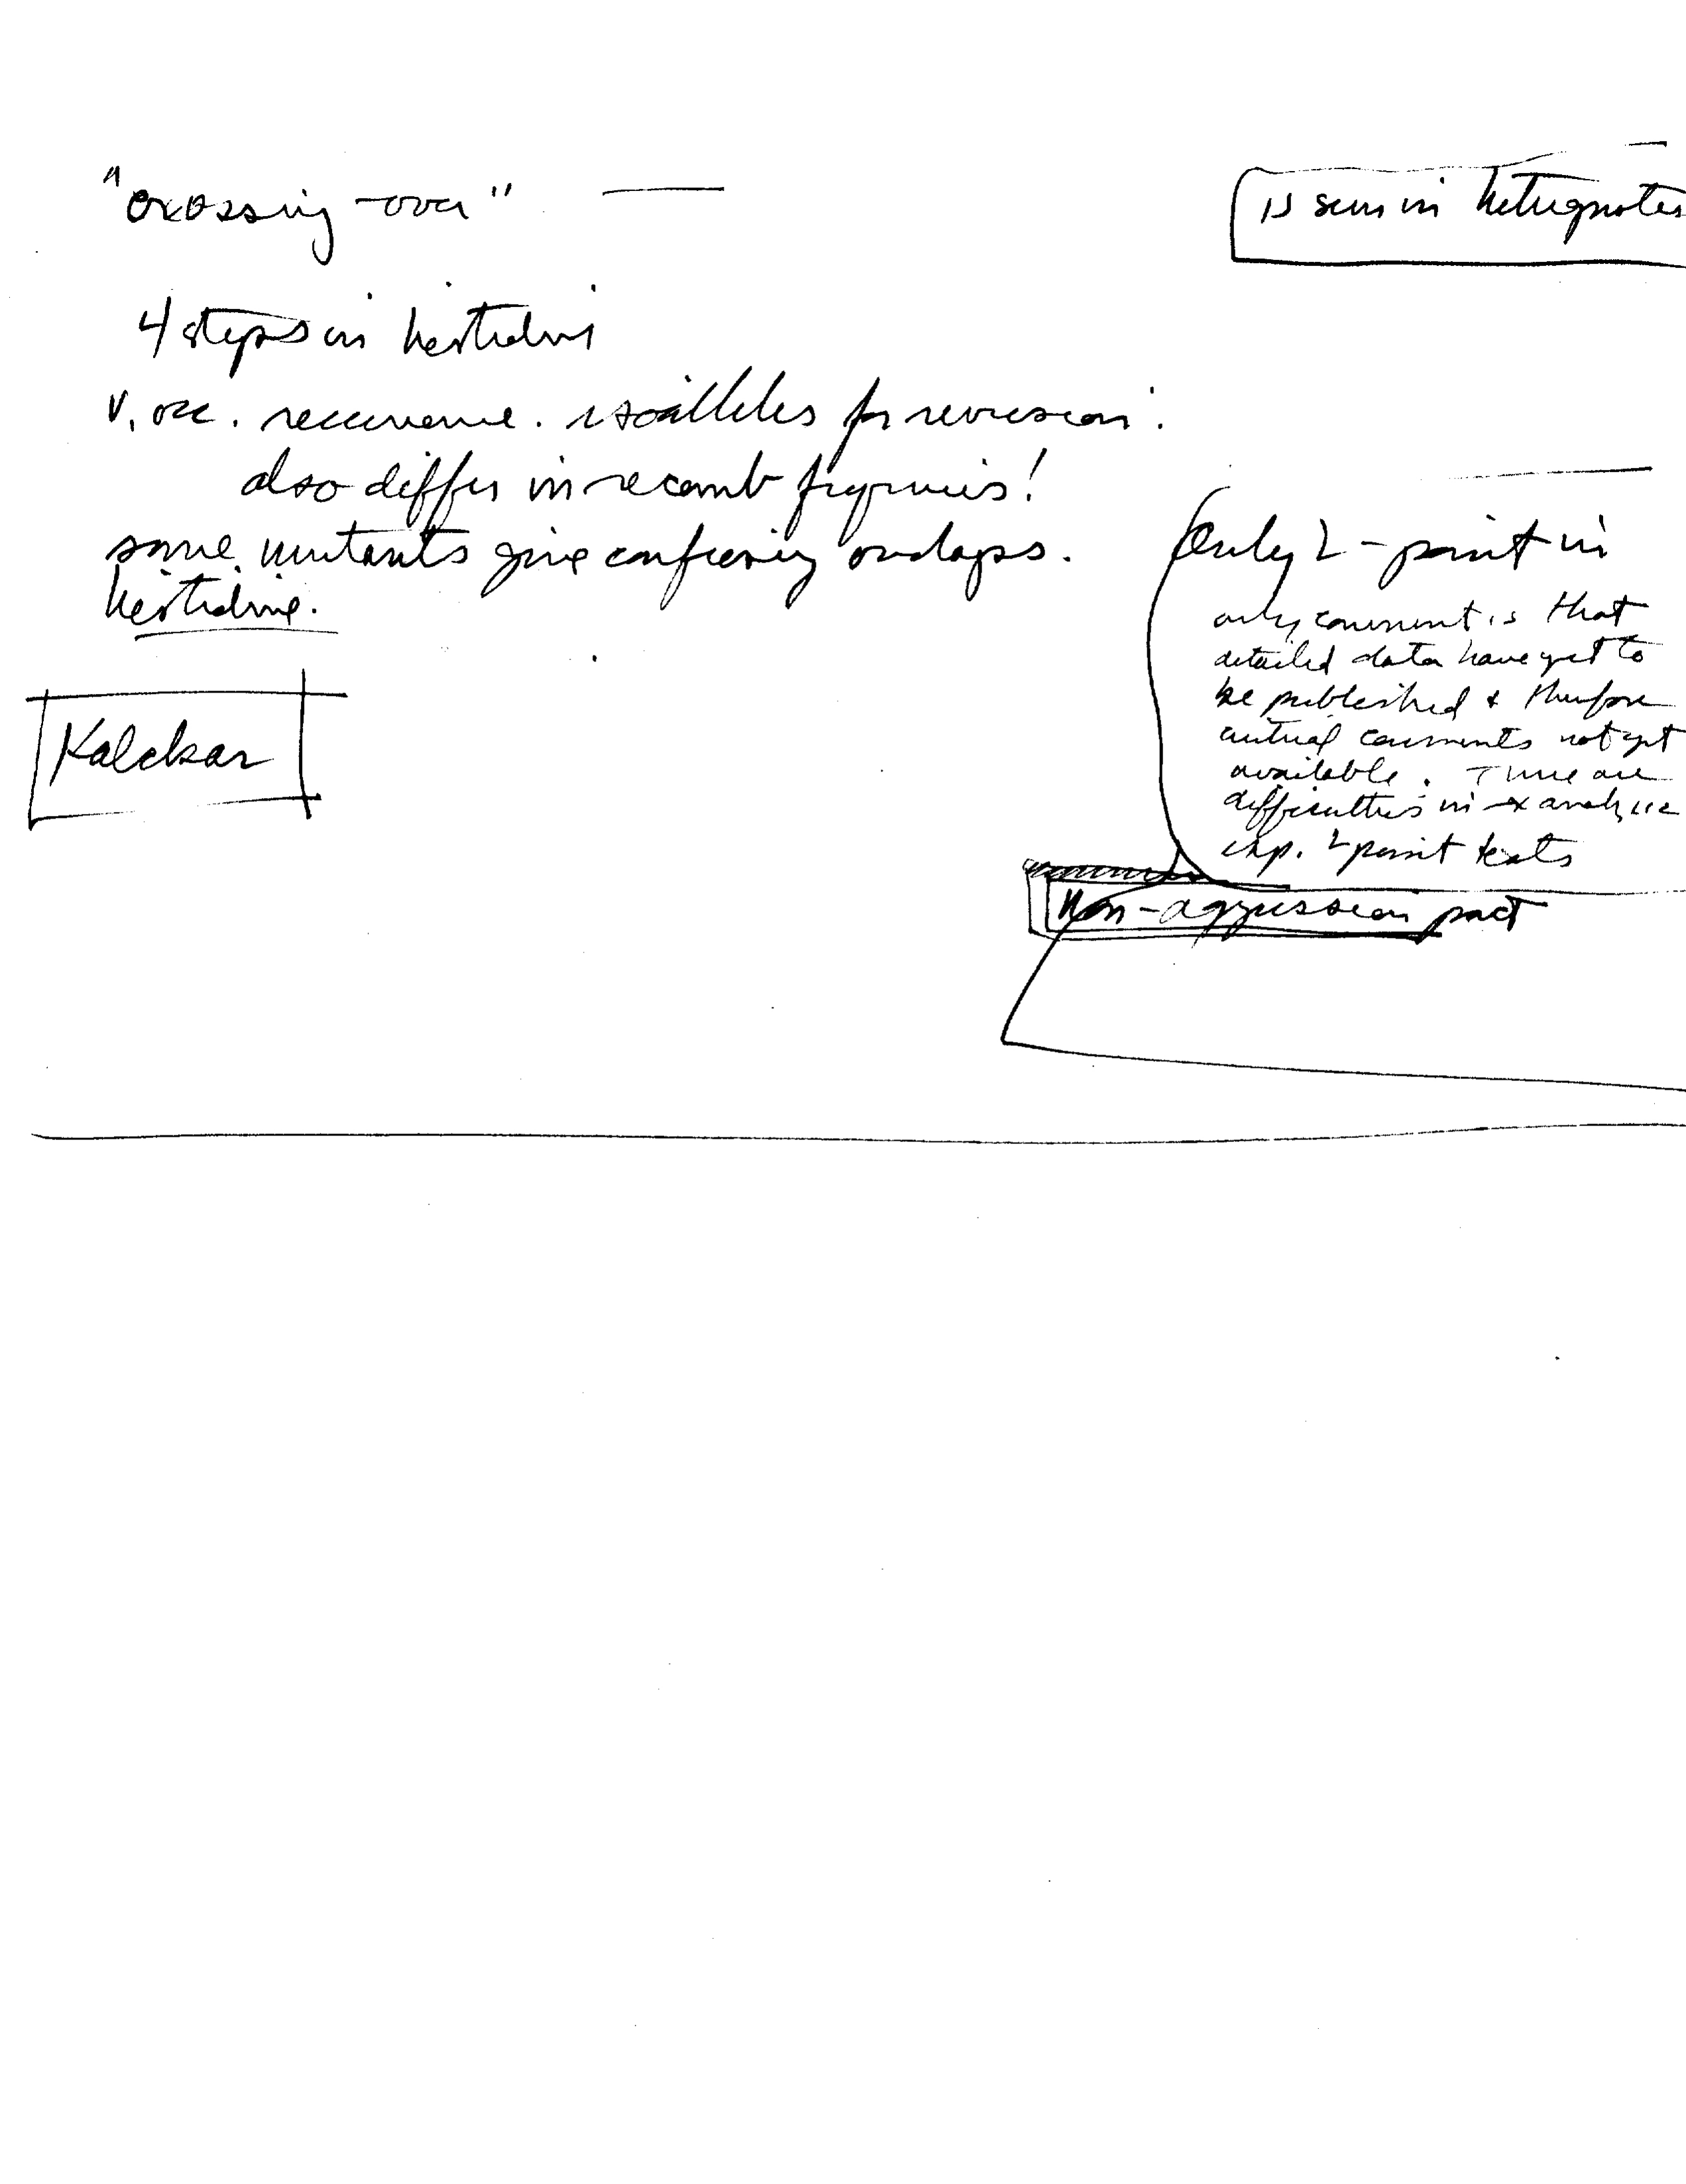 "crossing-over" —
is seen in heterogenotes
4 steps in histidine
v. occ. recurrence. isoalleles for reversion.
also differ in recomb frequencies!
some mutants give confusing overlaps.
histidine.
Kalckar
Only 2-point in
only comment is that
detailed data have yet to
be published & therefore
critical comments not yet
available. There are
difficulties in analysis
esp. 2 point tests
Non-aggression pact